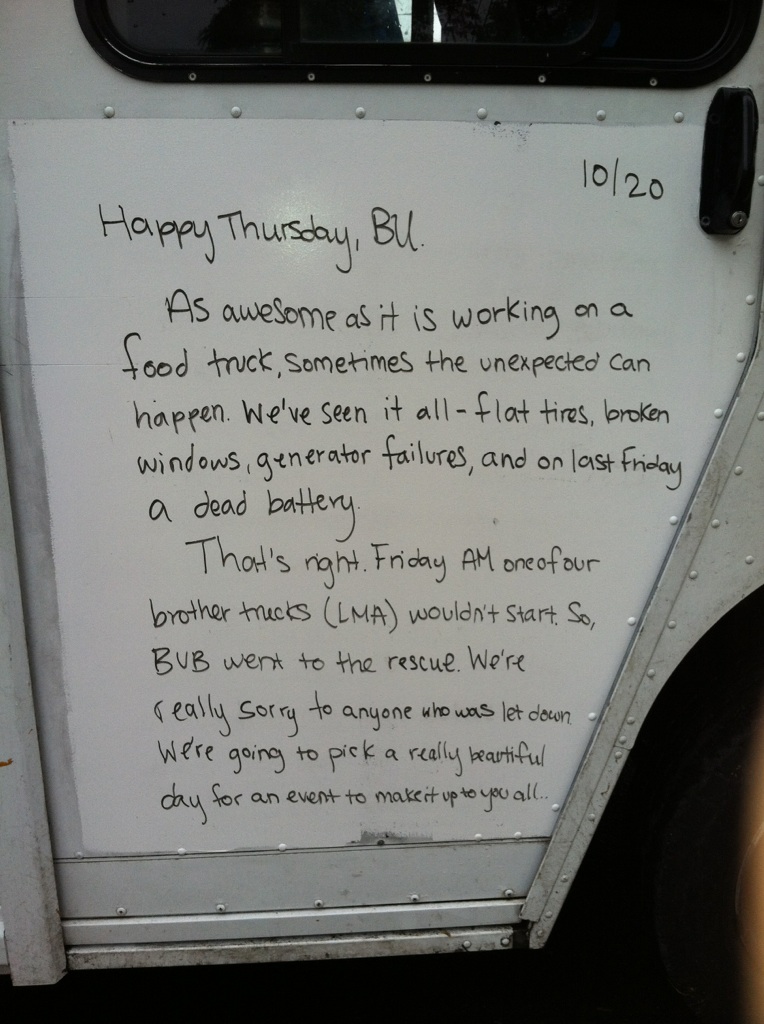 10/20
Happy Thursday, BU.
As awesome as it is working on a
food truck, sometimes the unexpected can
happen. We've seen it all - flat tires, broken
windows, generator failures, and on last Friday
a dead battery.
That's right. Friday AM one of our
brother trucks (LMA) wouldn't start. So,
BVB went to the rescue. We're
really sorry to anyone who was let down
We're going to pick a really beautiful
day for an event to make it up to you all..